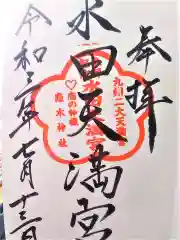 奉拝
九州二大天満宮
水田天満宮
♡恋の神様
恋木神社
令和三年七月十三日